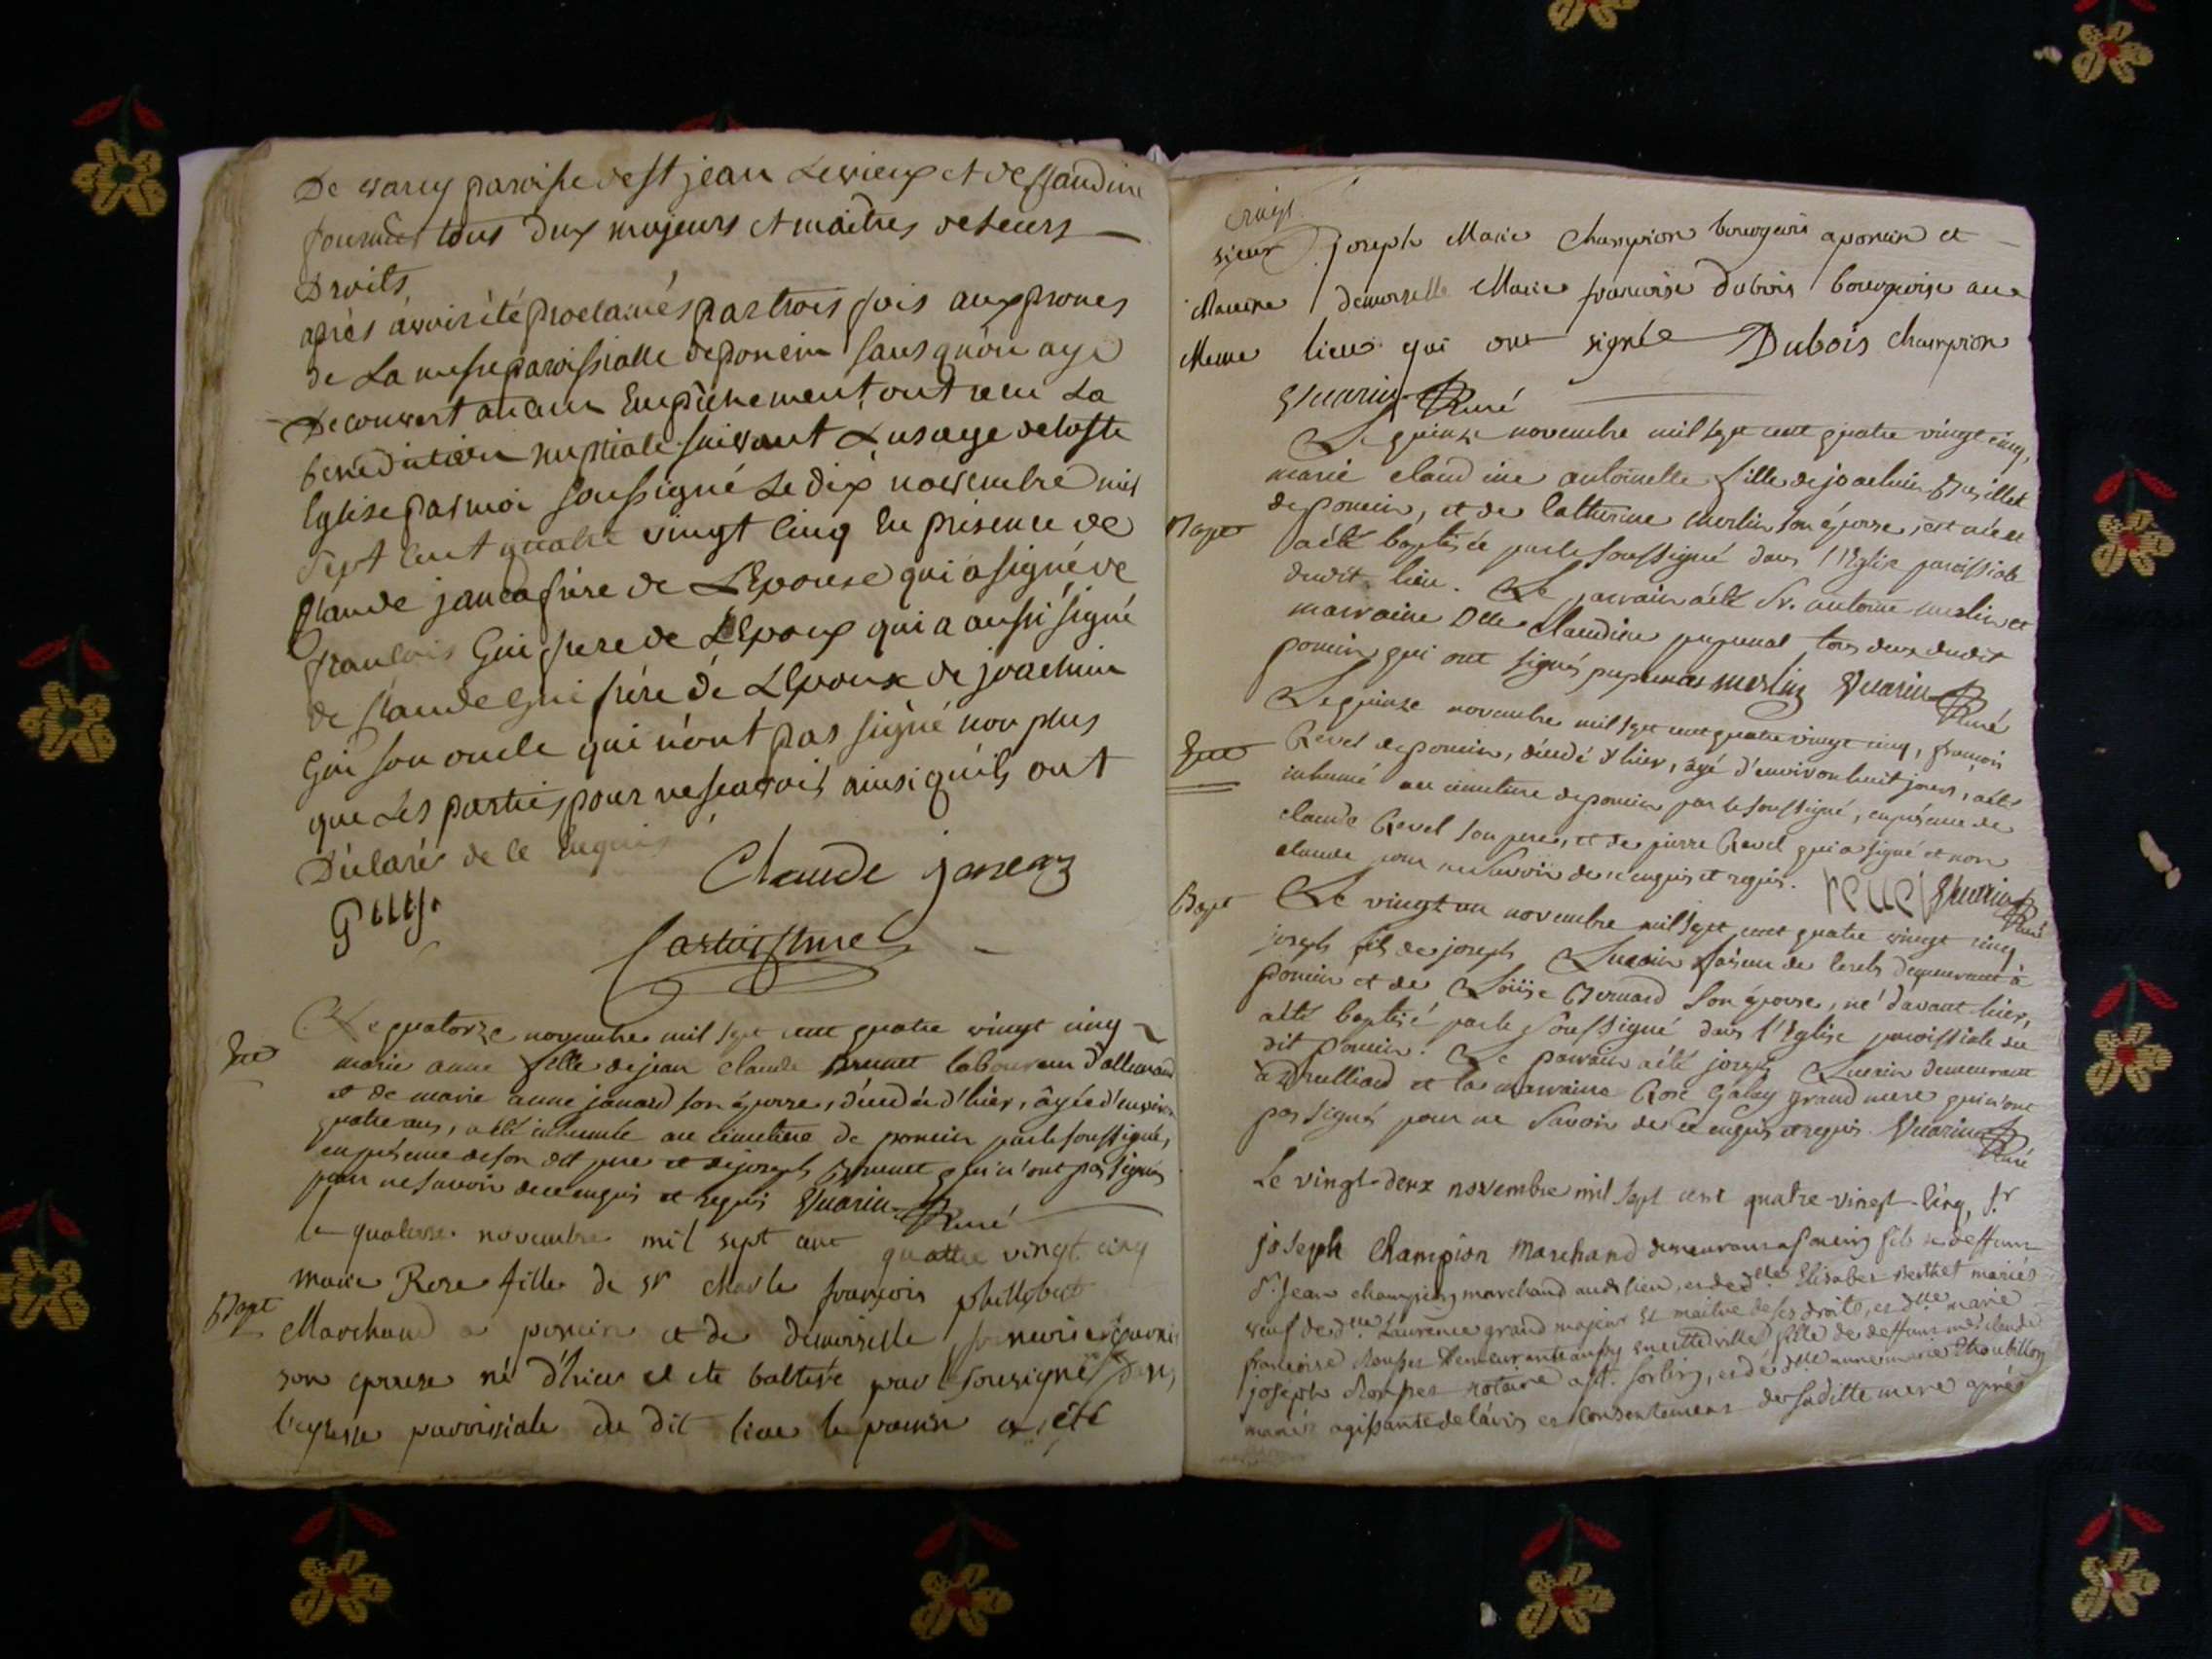 De varey paroisse de st jean Levieux et de Claudine
fournier tous deux majeurs et maitres de Leurs
Droits
après avoir été proclamés par trois fois aux prones
de La messe paroissialle de poncin sans qu'on aye
Decouvert aucun Empechement ont recu La
benediction nuptiale suivant L'usage de laste
Eglise par moi soussigné Le dix novembre mil
sept cent quatre vingt cinq En présence de
Claude janea frère de L'Epouse qui a signé de
francois Gui frere de L'Epoux qui a aussi signé
de Claude Gui frère de L'Epoux de joachim
Gui son oncle qui n'ont pas signé non plus
que Les parties pour ne scavoir, ainsi qu'ils ont
Déclaré de ce Enquis
Claude janeaz
Guy.
Le quatorze novembre mil sept cent quatre vingt cinq
marie anne fille de jean claude Brunet laboureur d'allemand
et de marie anne janard son épouse, décédée d'hier, âgée d'environ
quatre ans, a été inhumée au cimetiere de poncin par le soussigné,
en présence de son dit pere et de joseph Brunet qui n'ont pas signés
pour ne savoir de ce enquis et requis Vuarin Curé
le quatorze novembre mil sept cent quattre vingt cinq
Bapt
marie Rose fille de Sr charle françois philibert
Marchand a poncin et de demoiselle
son epouse né d'hier et été baltisé par l sousigné dans
l'eglise paroissiale du dit lieu le parin a été
sieur joseph Marie Champion bourgeois a poncin et
Mareine demoiselle Marie francoise dubois bourgeoise au
Meme lieu qui ont signée Dubois Champion
Vuarin Curé
Le quinze novembre mil sept cent quatre vingt cinq,
marie claudine antoinette fille de joachim
de poncin, et de Catherine merlin son épouse, est née et
Bapt
a été baptisée par le soussigné dans l'Eglise paroissiale
dudit lieu. Le parrain a été Sr. antoine merlin et
marraine Dlle Claudine pupunat tous deux dudit
poncin qui ont signés pupunat merlin Vuarin Curé
Le quinze novembre mil sept cent quatre vingt cinq, françois
Revel de poncin, décédé d'hier, âgé d'environ huit jours, a été
inhumé au cimetiere de poncin par le soussigné, en présence de
claude Revel son pere, et de pierre Revel qui a signé et non
claude pour ne savoir de ce enquis et requis. revel Vuarin Curé
Bapt
Le vingt un novembre mil sept cent quatre vingt cinq
joseph fils de joseph Guerin faiseur de cercles demeurant à
poncin et de Loüise Bernard son épouse, né d'avant hier,
a été baptisé par le soussigné dans l'Eglise paroissiale du
dit poncin. Le parrain a été joseph Guerin demeurant
à Brulliard et la marraine Rose Galay grand mere qui n'ont
pas signés pour ne savoir de ce enquis et requis Vuarin Curé
Le vingt-deux novembre mil sept cent quatre-vingt-cinq, Sr
joseph Champion marchand demeurant a Poncin fils de deffunt
Sr. jean champion marchand aud. lieu, et de dlle Elisabet Berthet mariés
veuf de dlle Laurence grand majeur et maitre de ses droits, et dlle marie
françoise demeurante aussy en cette ville fille de deffunt me claude
joseph notaire a st. Sorlin, et de dlle anne marie
mariés agissante de l'avis et consentement de saditte mere après